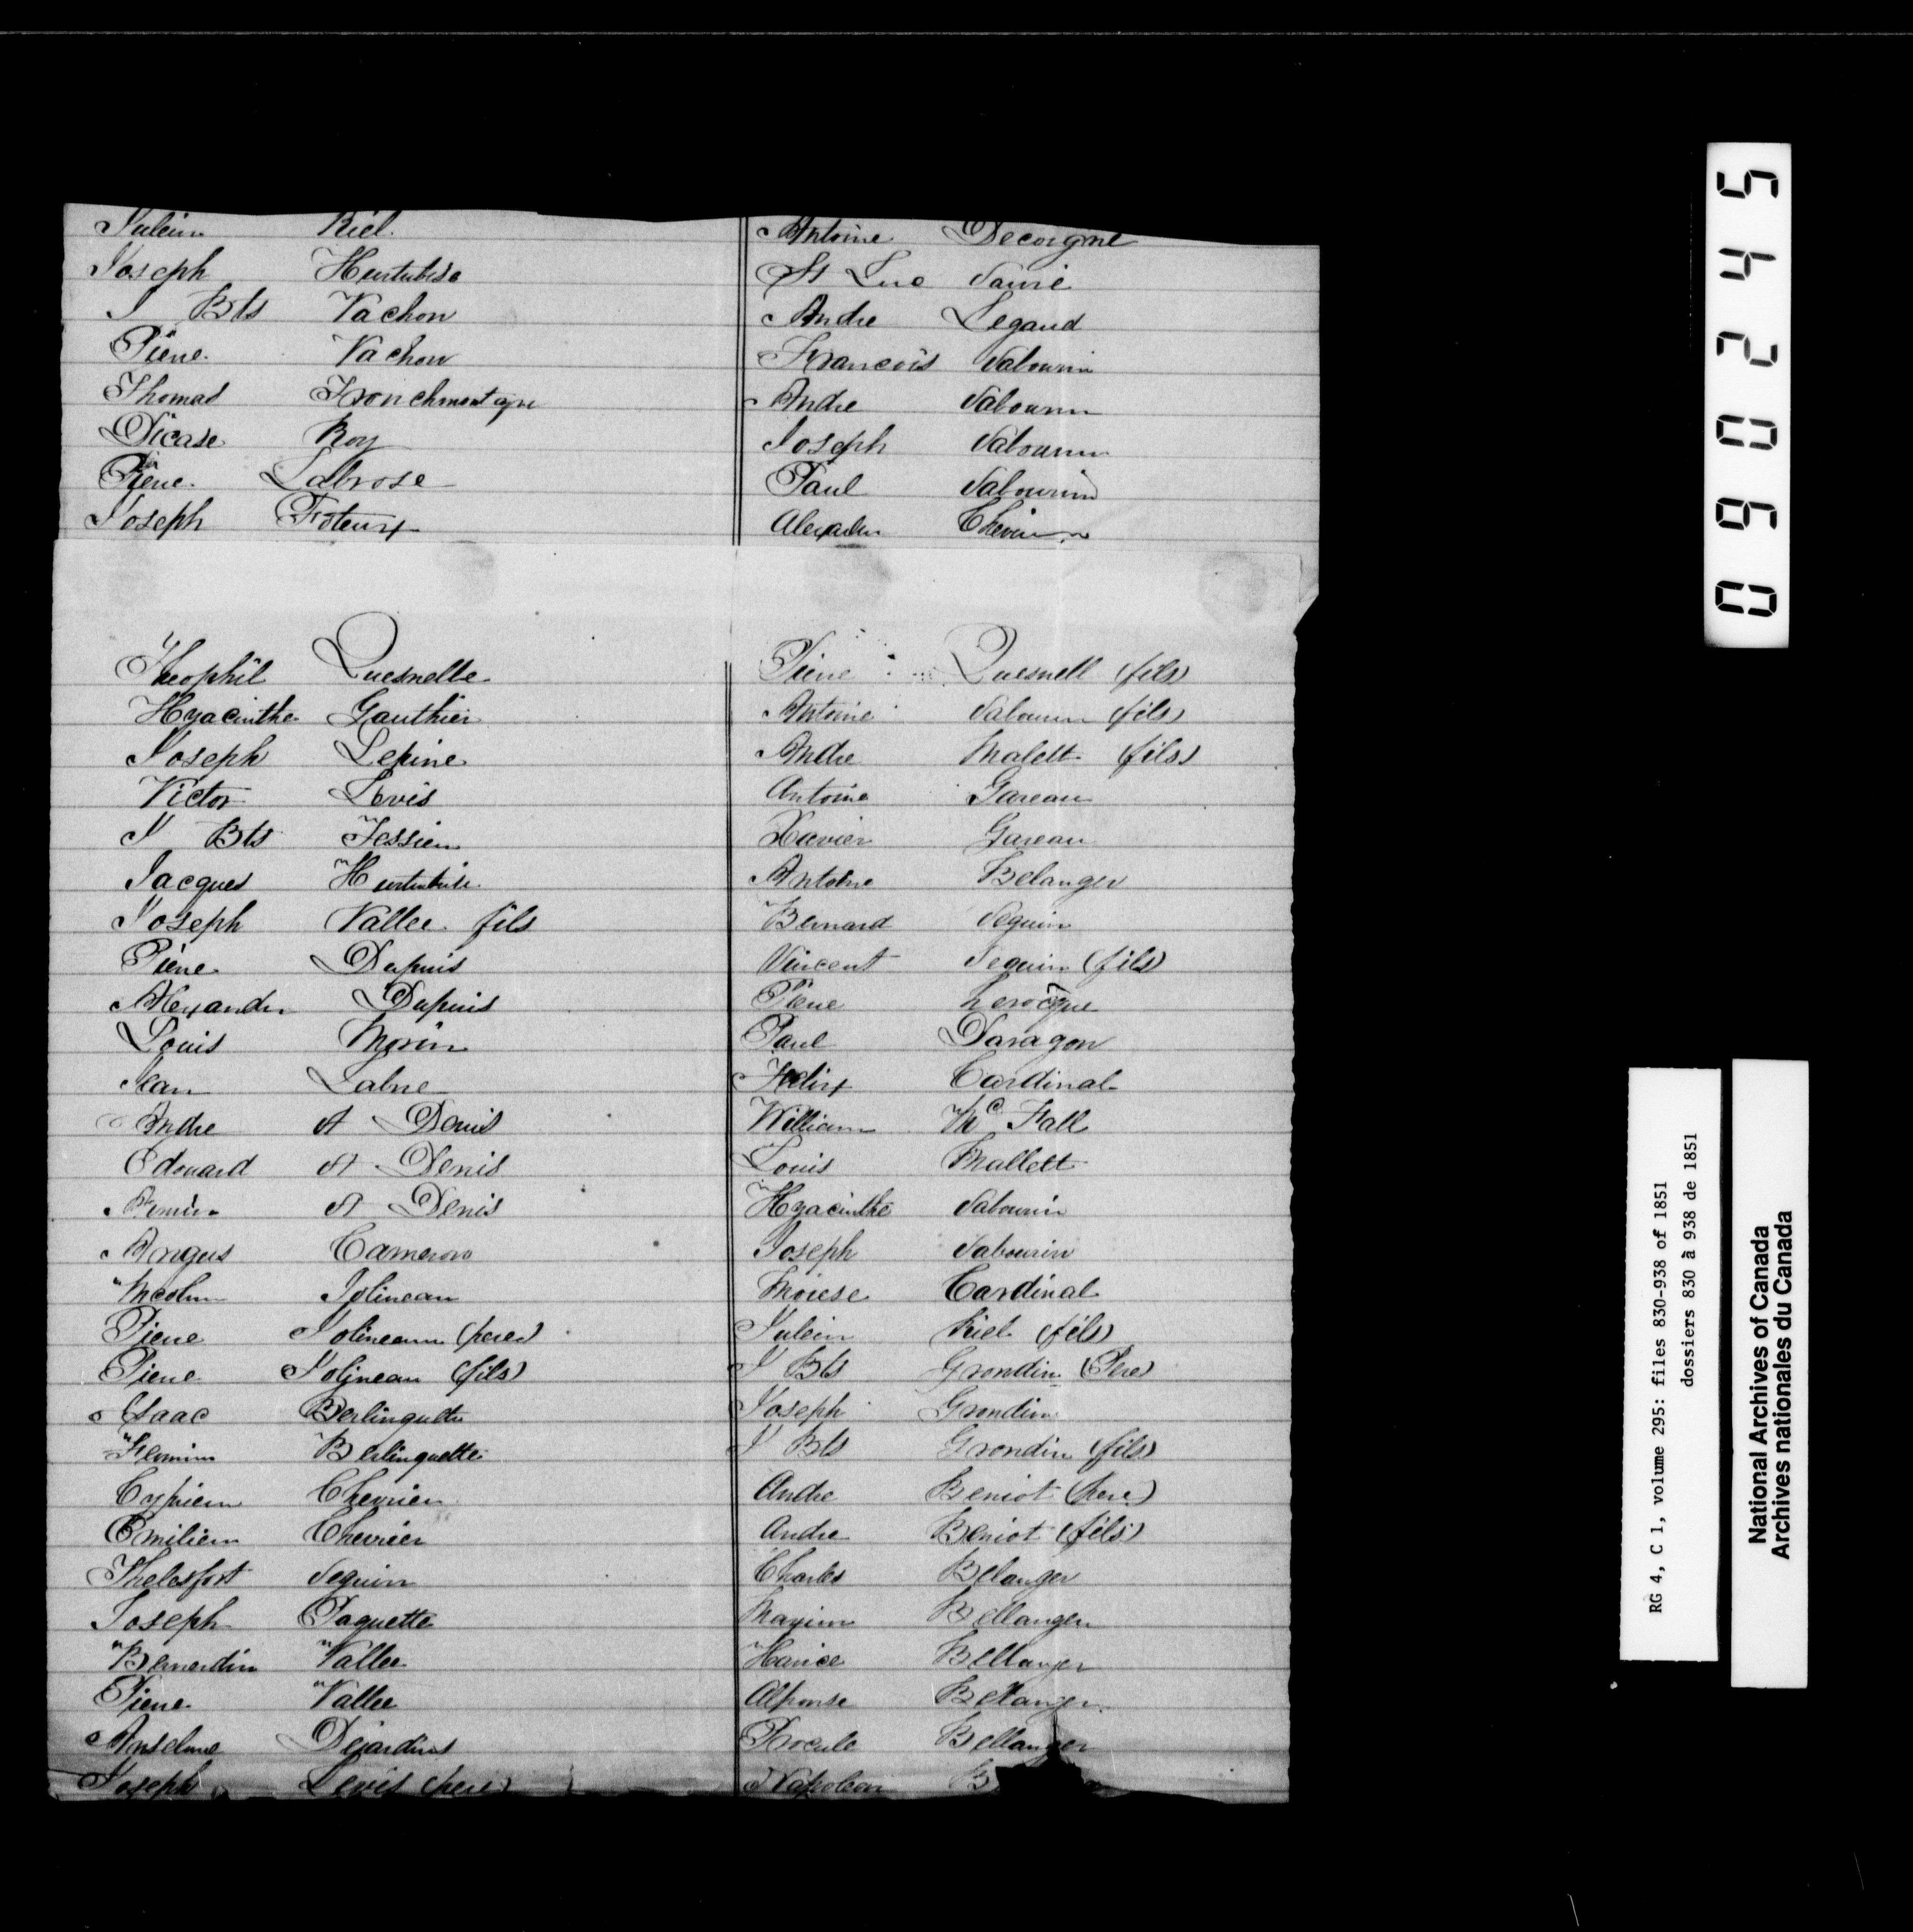 Julein Riel.
Joseph Hurtubise
J Bts Vachon
Pierre Vachon
Thomas
Dicase Roy
Pierre Labrose
Joseph
Antoine Decoigne
St Luc Sauvé
Andre Legaud
Francois Sabourin
Andre Sabourin
Joseph Sabourin
Paul Sabourin
Alexander Chevrier
Theophil Quesnelle
Hyacinthe Gauthier
Joseph Lepine
Victor Levis
J Bts Tessier
Jacques Hurtubise
Joseph Vallee fils
Pierre Dupuis
Alexander Dupuis
Louis Morin
Jean
Andre St Denis
Edouard St Denis
St Denis
Angus Cameron
Jolineau
Pierre Jolineau (pere)
Pierre Jolineau (fils)
Isaac Berlinguette
Firmin Berlinguette
Cyprien Chevrier
Emilien Chevrier
Thelesfort Seguin
Joseph Paquette
Bernardin Vallee
Pierre Vallee
Anselme Dejardins
Joseph Levis (pere)
Pierre Quesnell (fils)
Antoine Sabourin (fils)
Andre Malett (fils)
Antoine Gareau
Xavier Gareau
Antoine Belanger
Bernard Seguin
Vincent Seguin (fils)
Pierre Lerocque
Paul Daragon
Felix Cardinal
William Mc Fall
Louis Mallett
Hyacinthe Sabourin
Joseph Sabourin
Moiese Cardinal
Julein Riel (fils)
J Bts Grondin (Pere)
Joseph Grondin
J Bts Grondin (fils)
Andre Beniot (pere)
Andre Beniot (fils)
Charles Belanger
Maxim Bellanger
Bellanger
Alponse Bellanger
Procule Bellanger
Napoleon
090245
RG 4, C 1, volume 295: files 830-938 of 1851
dossiers 830 à 938 de 1851
National Archives of Canada
Archives nationales du Canada